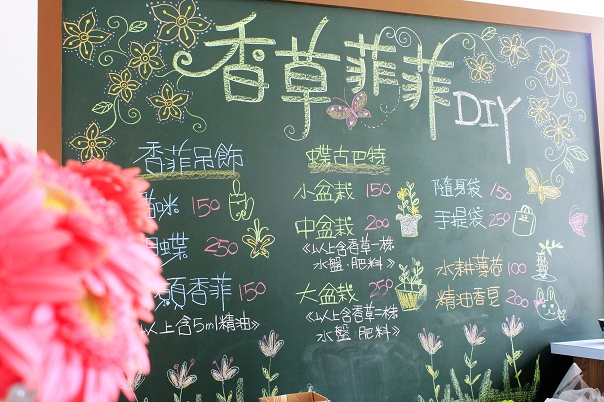 香草菲菲 DIY
香菲吊飾
咪 150
蝶 250
香菲 150
以上含5ml精油》
蝶古巴特
小盆栽 150
中盆栽 200
《以上含香草一株
水盤、肥料》
大盆栽 250
《以上含香草二株
水盤、肥料》
隨身袋 150
手提袋 250
水耕薄荷 100
精油香皂 200